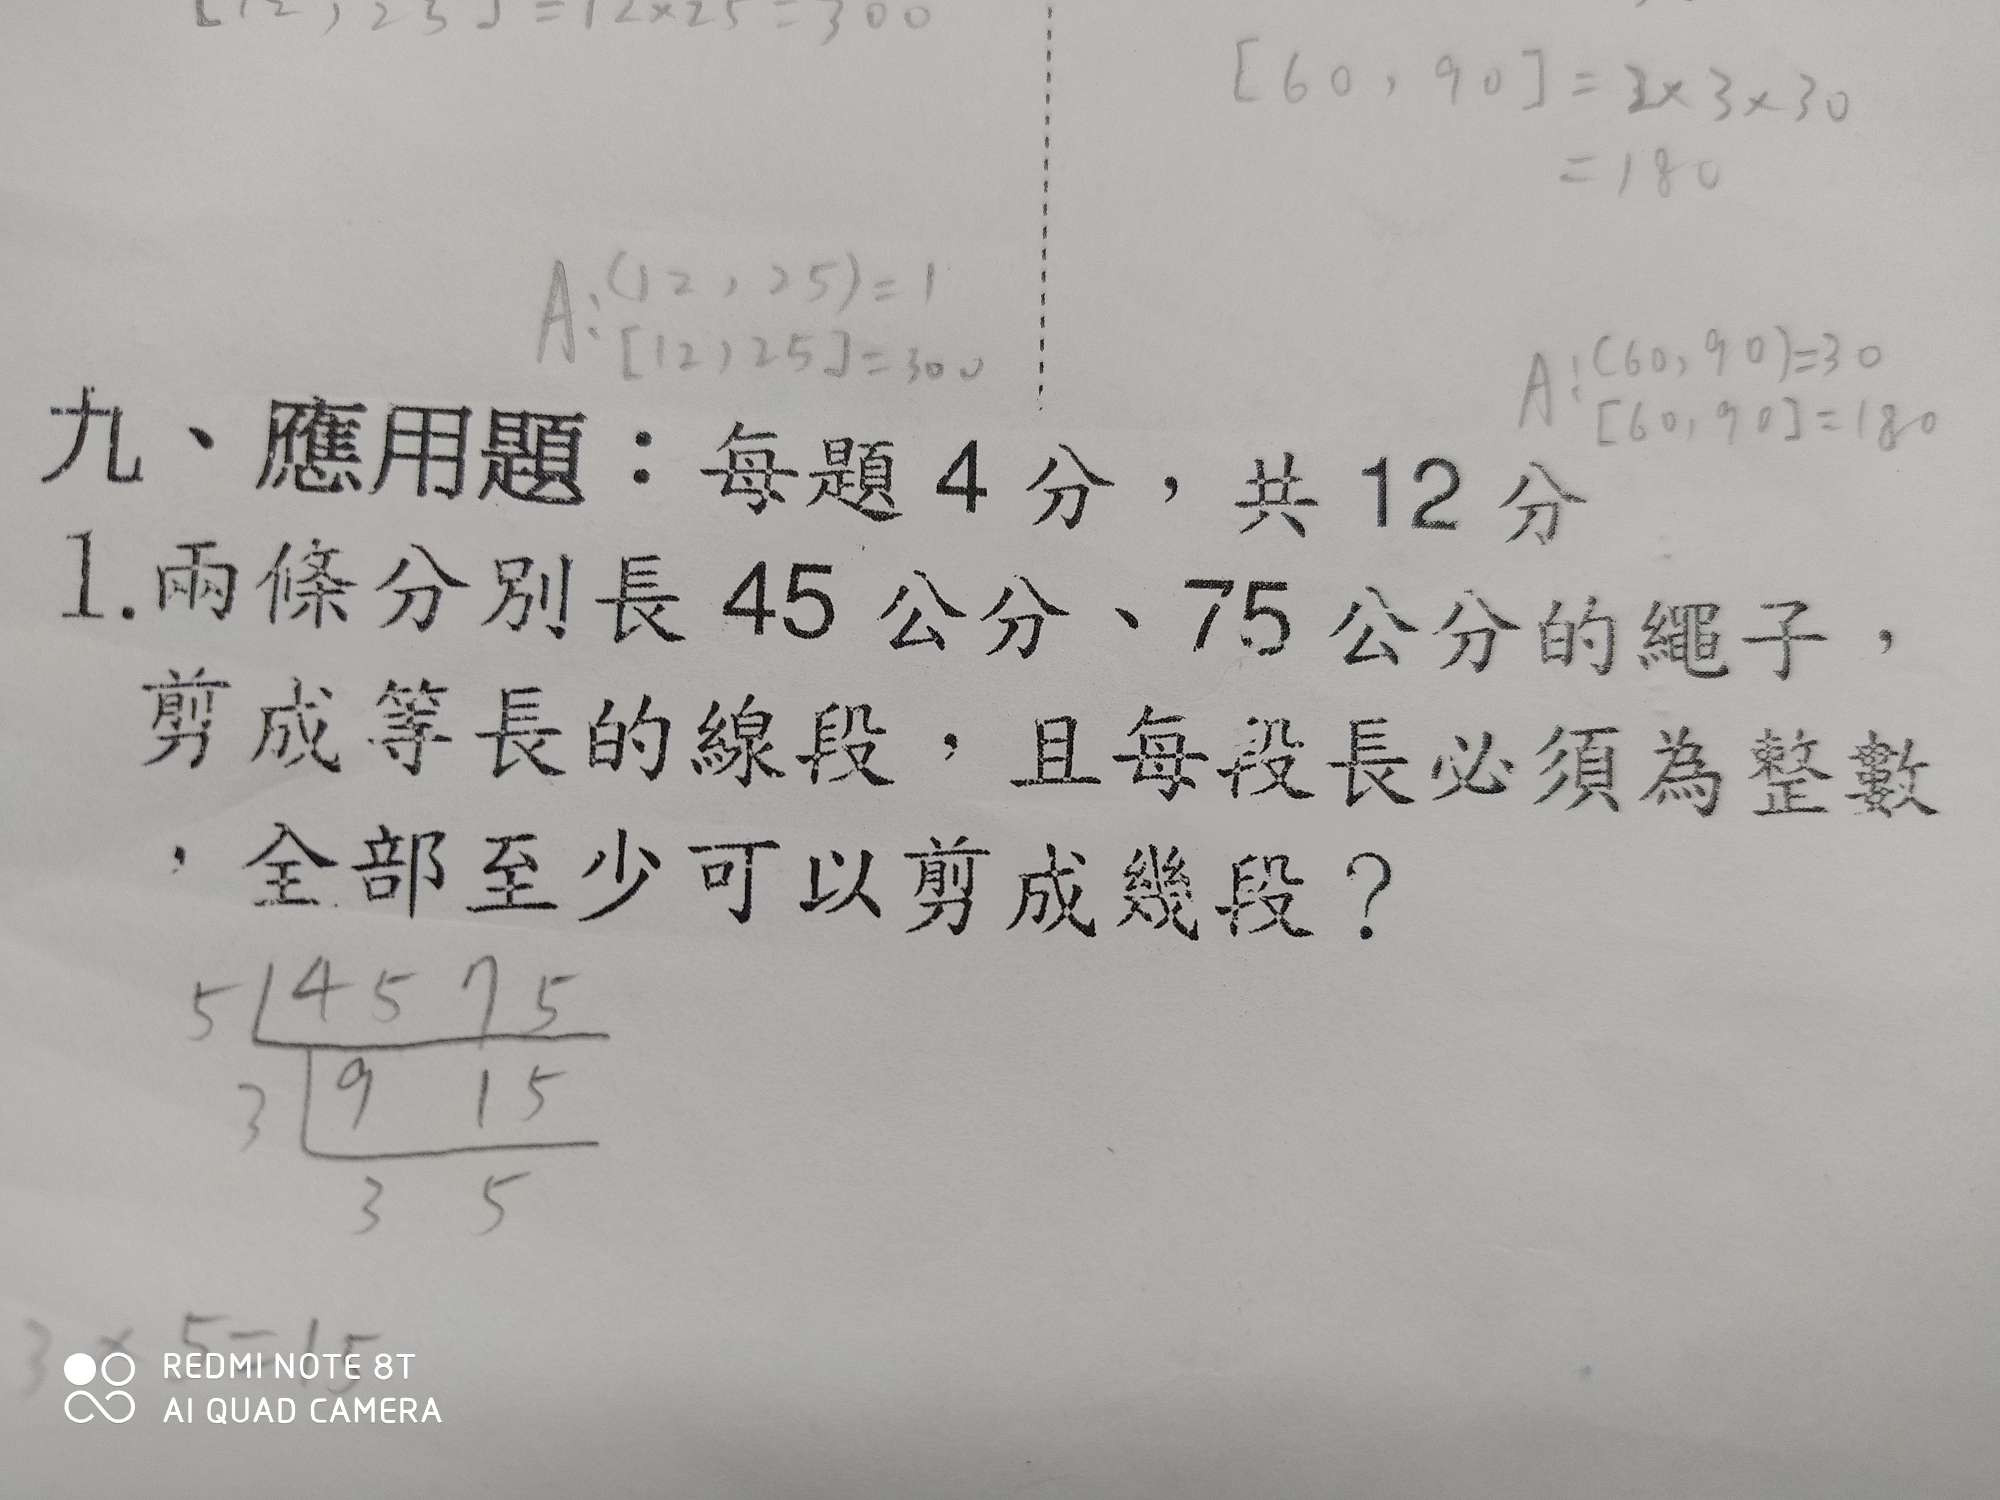 [12,25]=12×25=300
[60,90]=2×3×30
=180
A:(12,25)=1
[12,25]=300
A:(60,90)=30
[60,90]=180
九、應用題:每題4分,共12分
1.兩條分別長45公分、75公分的繩子,
剪成等長的線段,且每段長必須為整數
,全部至少可以剪成幾段?
5 45 75
3 9 15
3 5
3×5=15
REDMI NOTE 8T
AI QUAD CAMERA